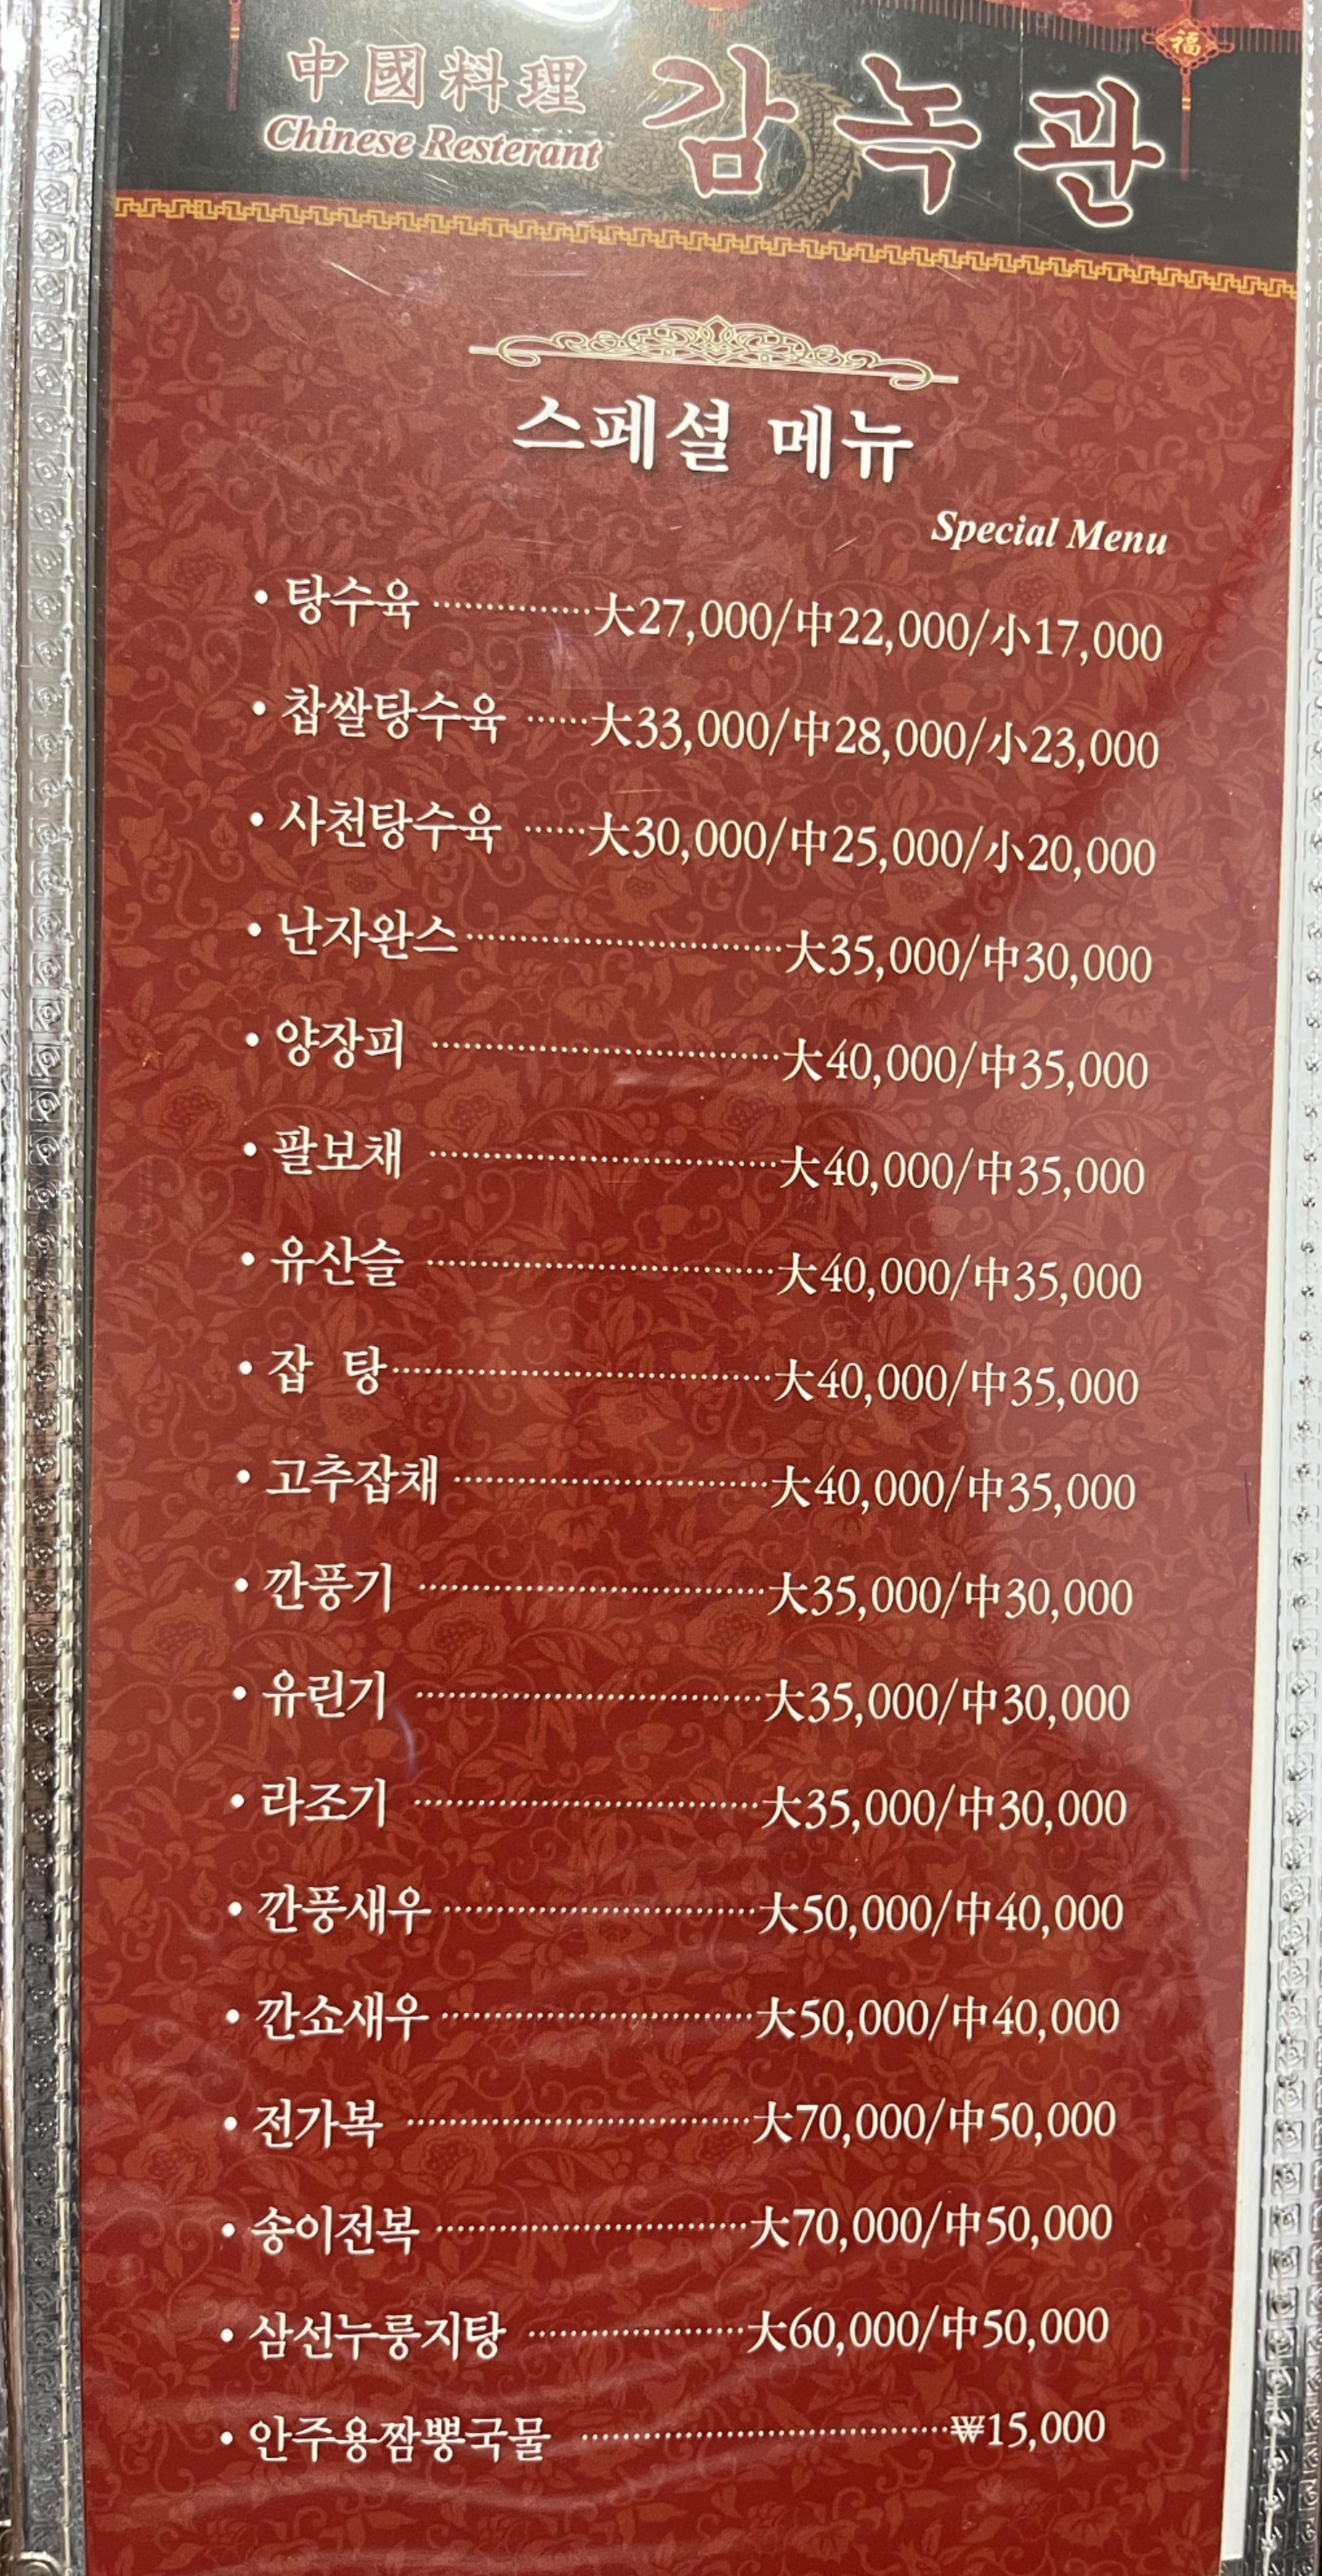 福
中國料理 감녹관
Chinese Resterant
스페셜 메뉴
Special Menu
• 탕수육 ··············大27,000/中22,000/小17,000
• 찹쌀탕수육 ······大33,000/中28,000/小23,000
• 사천탕수육 ······大30,000/中25,000/小20,000
• 난자완스································大35,000/中30,000
• 양장피 ···································大40,000/中35,000
• 팔보채 ···································大40,000/中35,000
• 유산슬 ···································大40,000/中35,000
• 잡 탕······································大40,000/中35,000
• 고추잡채 ································大40,000/中35,000
• 깐풍기 ···································大35,000/中30,000
• 유린기 ···································大35,000/中30,000
• 라조기 ···································大35,000/中30,000
• 깐풍새우 ································大50,000/中40,000
• 깐쇼새우 ································大50,000/中40,000
• 전가복 ···································大70,000/中50,000
• 송이전복 ································大70,000/中50,000
• 삼선누룽지탕 ······················大60,000/中50,000
• 안주용짬뽕국물 ·····································₩15,000